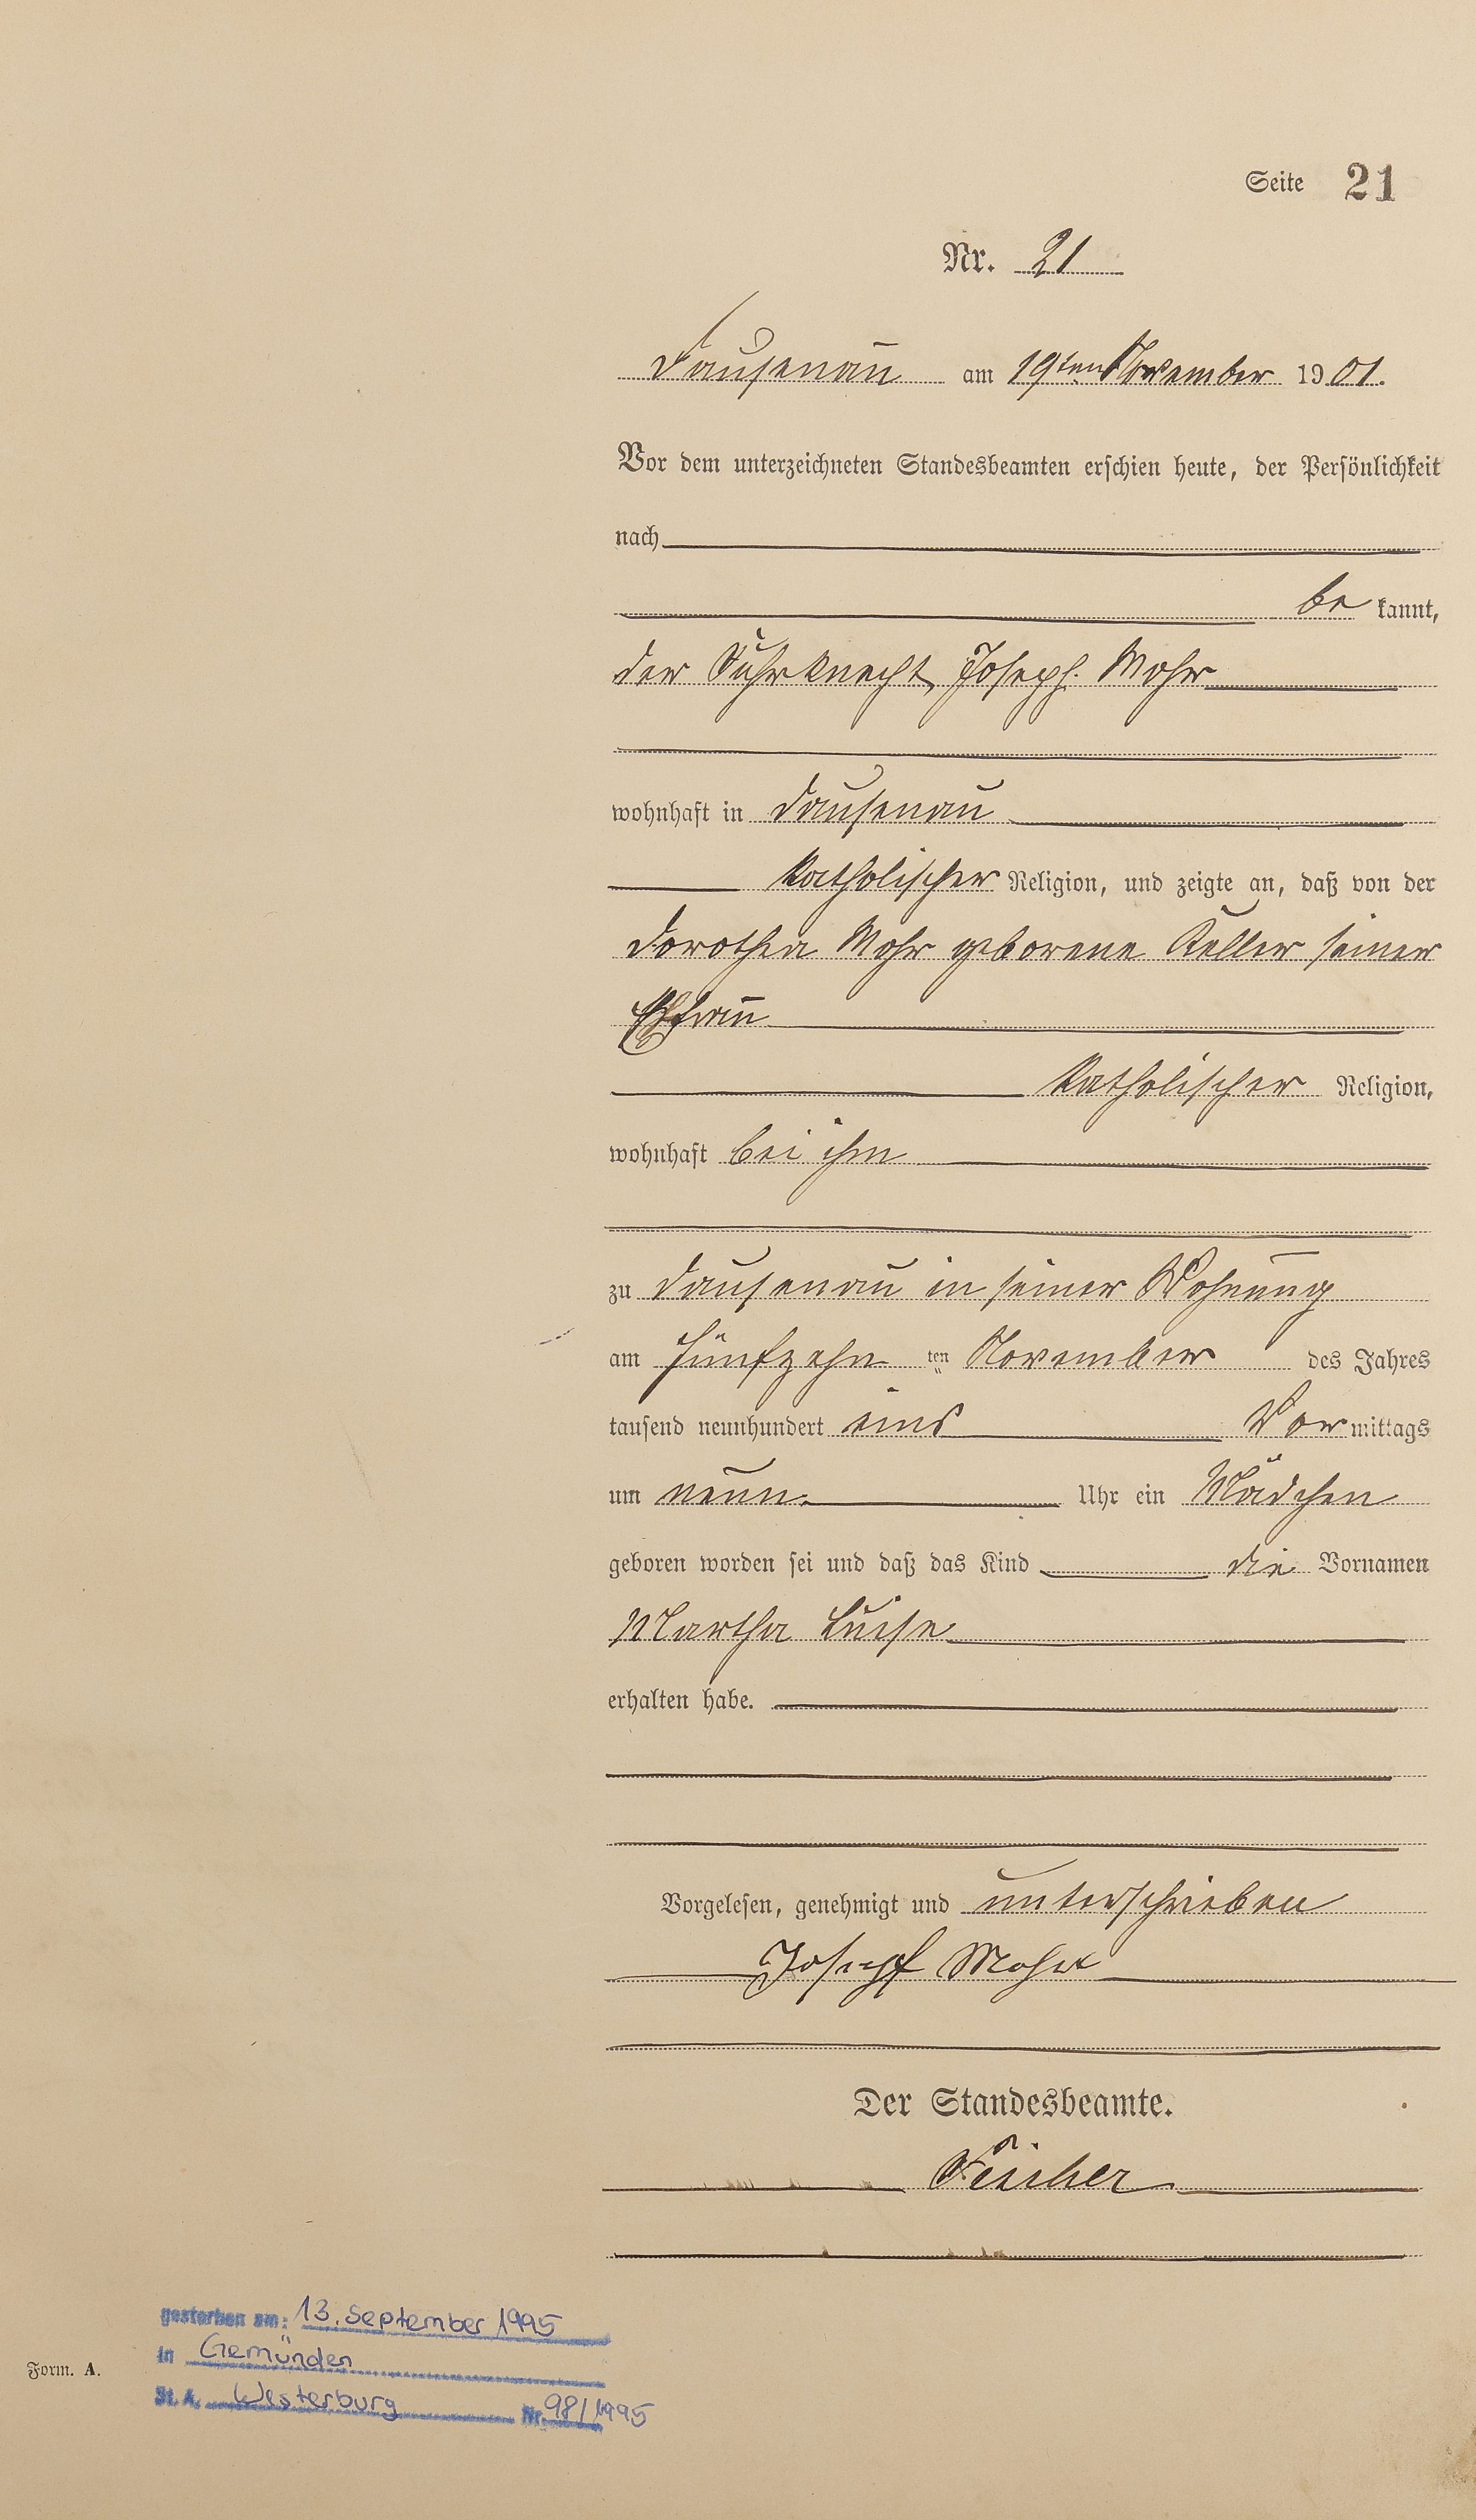 Seite 21
Nr. 21
Dausenau am 19ten November 1901.
Vor dem unterzeichneten Standesbeamten erschien heute, der Persönlichkeit
nach
be kannt,
der Fuhrknecht Joseph Mohr
wohnhaft in Dausenau
katholischer Religion, und zeigte an, daß von der
Dorothea Mohr geborene Keller seiner
Ehefrau
katholischer Religion,
wohnhaft bei ihm
zu Dausenau in seiner Wohnung
am fünfzehn ten November des Jahres
tausend neunhundert eins Vormittags
um neun Uhr ein Mädchen
geboren worden sei und daß das Kind die Vornamen
Martha Luise
erhalten habe.
Vorgelesen, genehmigt und unterschrieben
Joseph Mohr
Der Standesbeamte.
gestorben am: 13. September 1995
in Gemünden
Form. A.
St. A. Westerburg Nr. 98/1995